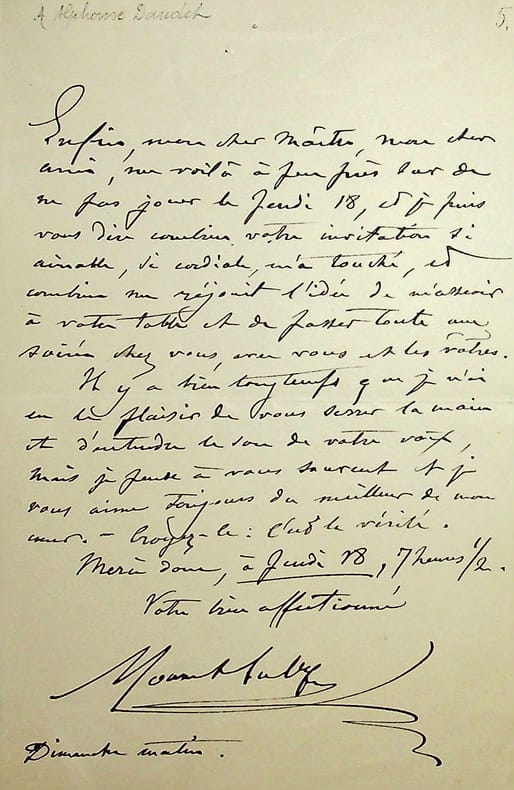 A Alphonse Daudet
5.
Enfin, mon cher Maître, mon cher
ami, me voilà à peu près sûr de
ne pas jouer le Jeudi 18, et je puis
vous dire combien votre invitation si
aimable, si cordiale, m'a touché, et
combien me réjouit l'idée de m'asseoir
à votre table et de passer toute une
soirée chez vous, avec vous et les vôtres.
Il y a bien longtemps que je n'ai
eu le plaisir de vous serrer la main
et d'entendre le son de votre voix,
mais je pense à vous souvent et je
vous aime toujours du meilleur de mon
cœur. – Croyez-le : c'est la vérité.
Merci donc, à Jeudi 18, 7 heures 1/2.
Votre bien affectionné
Mounet Sully
Dimanche matin.